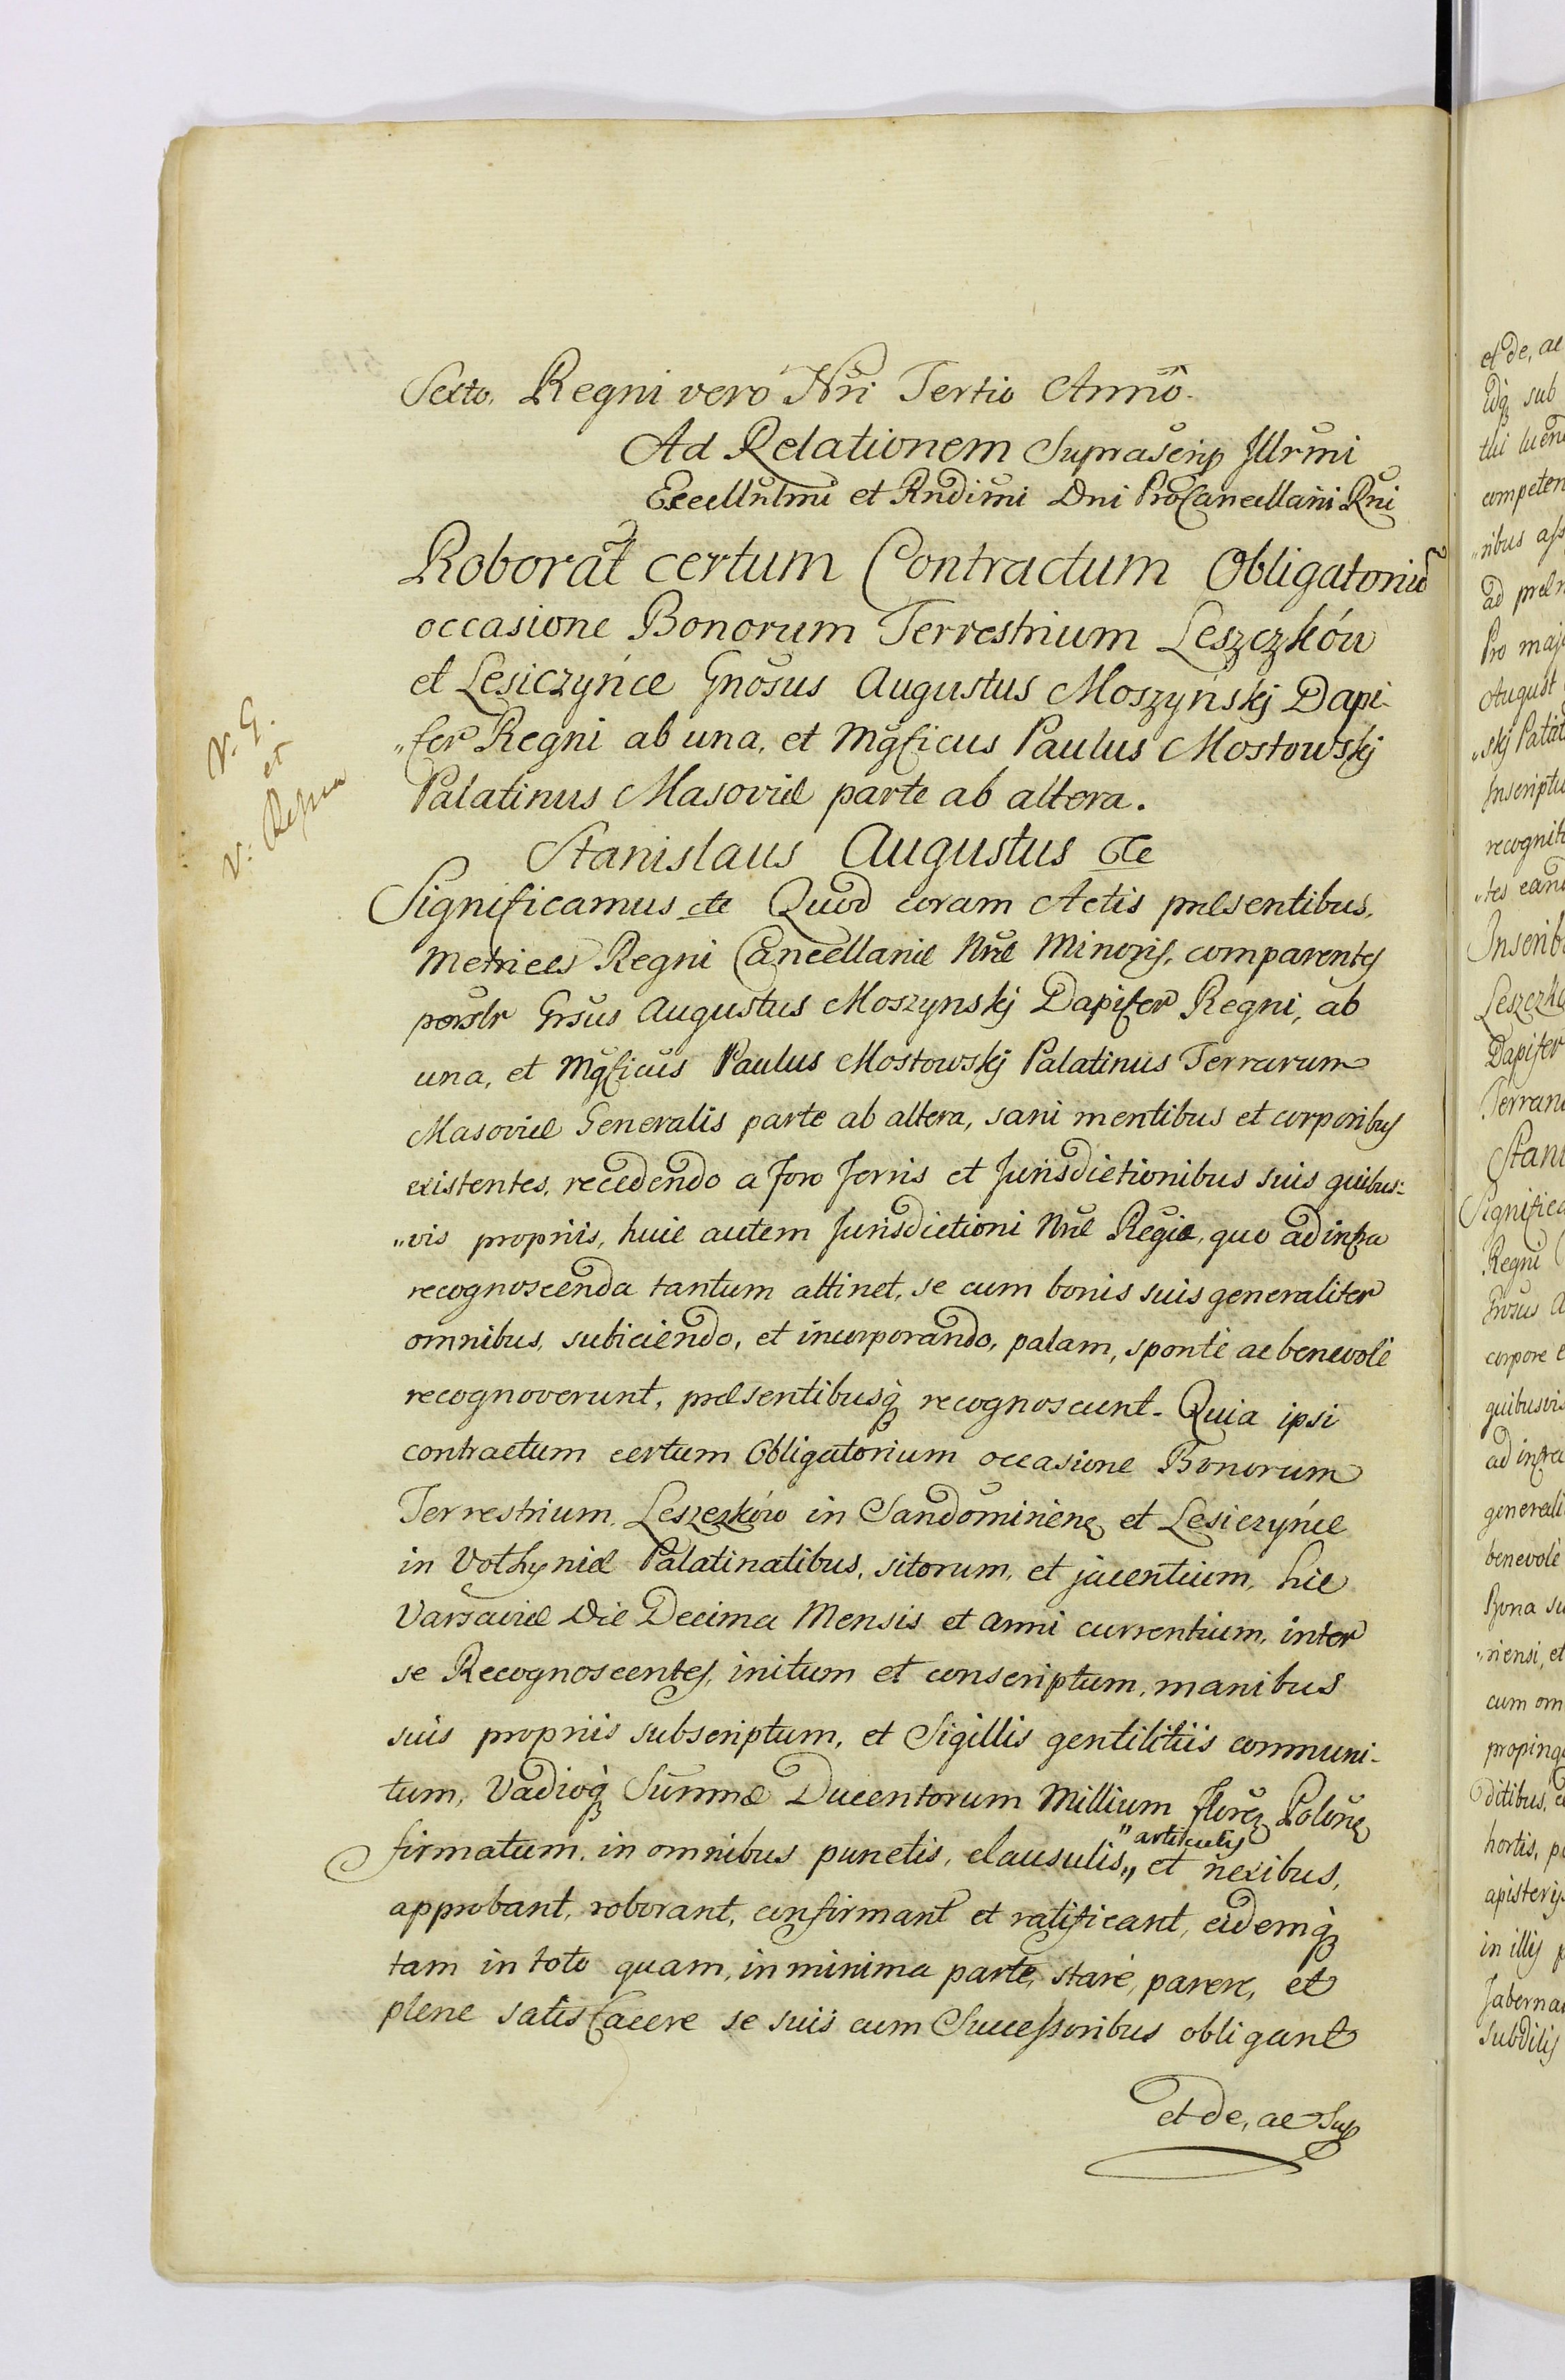 Sexto, Regni vero Nri Tertio Anno.
Ad Relationem Suprascrip Illrmi
Excellntmi et Rndimi Dni ProCancellarii Rni
Roborat certum Contractum Obligatoriu
occasione Bonorum Terrestrium Leszczków
et Lesiczyńce Gnosus Augustus Moszyńskj Dapi-
„fer Regni ab una, et Mgficus Paulus Mostowskj
Palatinus Masoviæ parte ab altera.
V. G.
et
V:
Stanislaus Augustus etc
Significamus etc Quod coram Actis præsentibus,
Metrices Regni Cancellariæ Nræ Minoris, comparentes
persolr Gnsus Augustus Moszynskj Dapifer Regni, ab
una, et Mgficus Paulus Mostowskj Palatinus Terrarum
Masoviæ Generalis parte ab altera, sani mentibus et corporibus
existentes, recedendo a foro Terris et Jurisdictionibus suis quibus:
„vis propriis, huic autem Jurisdictioni Nræ Regiæ, quo ad infra
recognoscenda tantum attinet, se cum bonis suis generaliter
omnibus, subiciendo, et incorporando, palam, sponte ac benevole
recognoverunt, præsentibusq recognoscunt. Quia ipsi
contractum certum Obligatorium occasione Bonorum
Terrestrium, Leszczków in Sandomirien et Lesiczyńce
in Volhyniæ Palatinatibus, sitorum, et jacentium, hic
Varsaviæ Die Decima Mensis et anni currentium, inter
se Recognoscentes, initum et conscriptum, manibus
suis propriis subscriptum, et Sigillis gentilitiis communi-
tum, Vadioq Summæ Ducentorum Millium flore Polone
firmatum, in omnibus punctis, clausulis „ articulis „ et nexibus,
approbant, roborant, confirmant et ratificant, eidemq
tam in toto quam, in minima parte, stare, parere, et
plene satisfacere se suis cum Successoribus obligant
et de, ac Sup
et de, ac
idq sub
competen
ad præ
Pro maj
August
„skj Palat
Inscriptu
recognit
„tes eand
Inscrib
Leszczkó
Dapifer
Terraru
Stani
Significa
Regni
Gnosus A
corpore e
quibusvis
ad infra
generali
benevole
Bona su
„riensi, et
cum om
propinq
ditibus,
hortis, p
in illis p
Tabernac
subditis